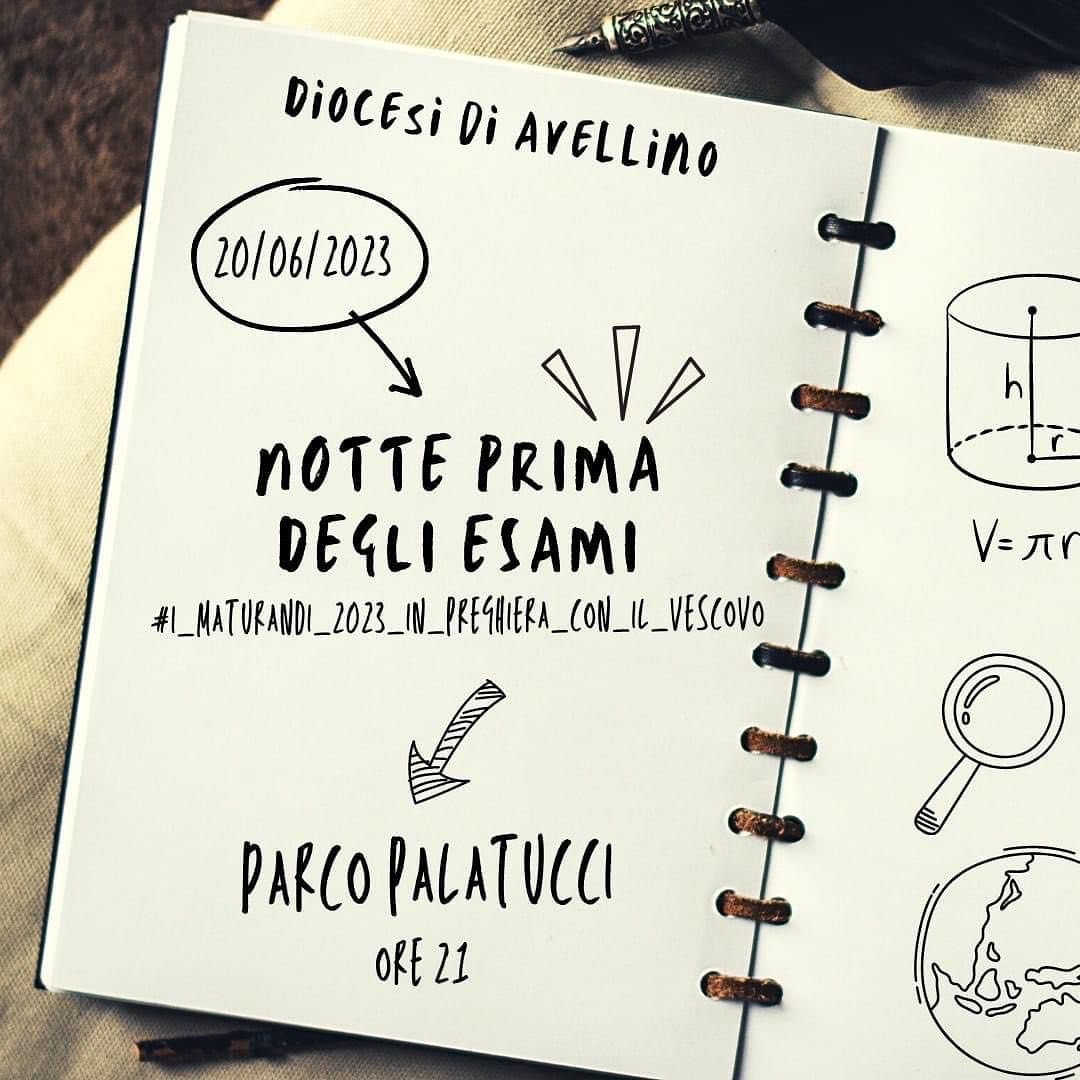 DIOCESI DI AVELLINO
20/06/2023
NOTTE PRIMA
DEGLI ESAMI
#I_MATURANDI_2023_IN_PREGHIERA_CON_IL_VESCOVO
PARCO PALATUCCI
ORE 21
h
r
V= πr